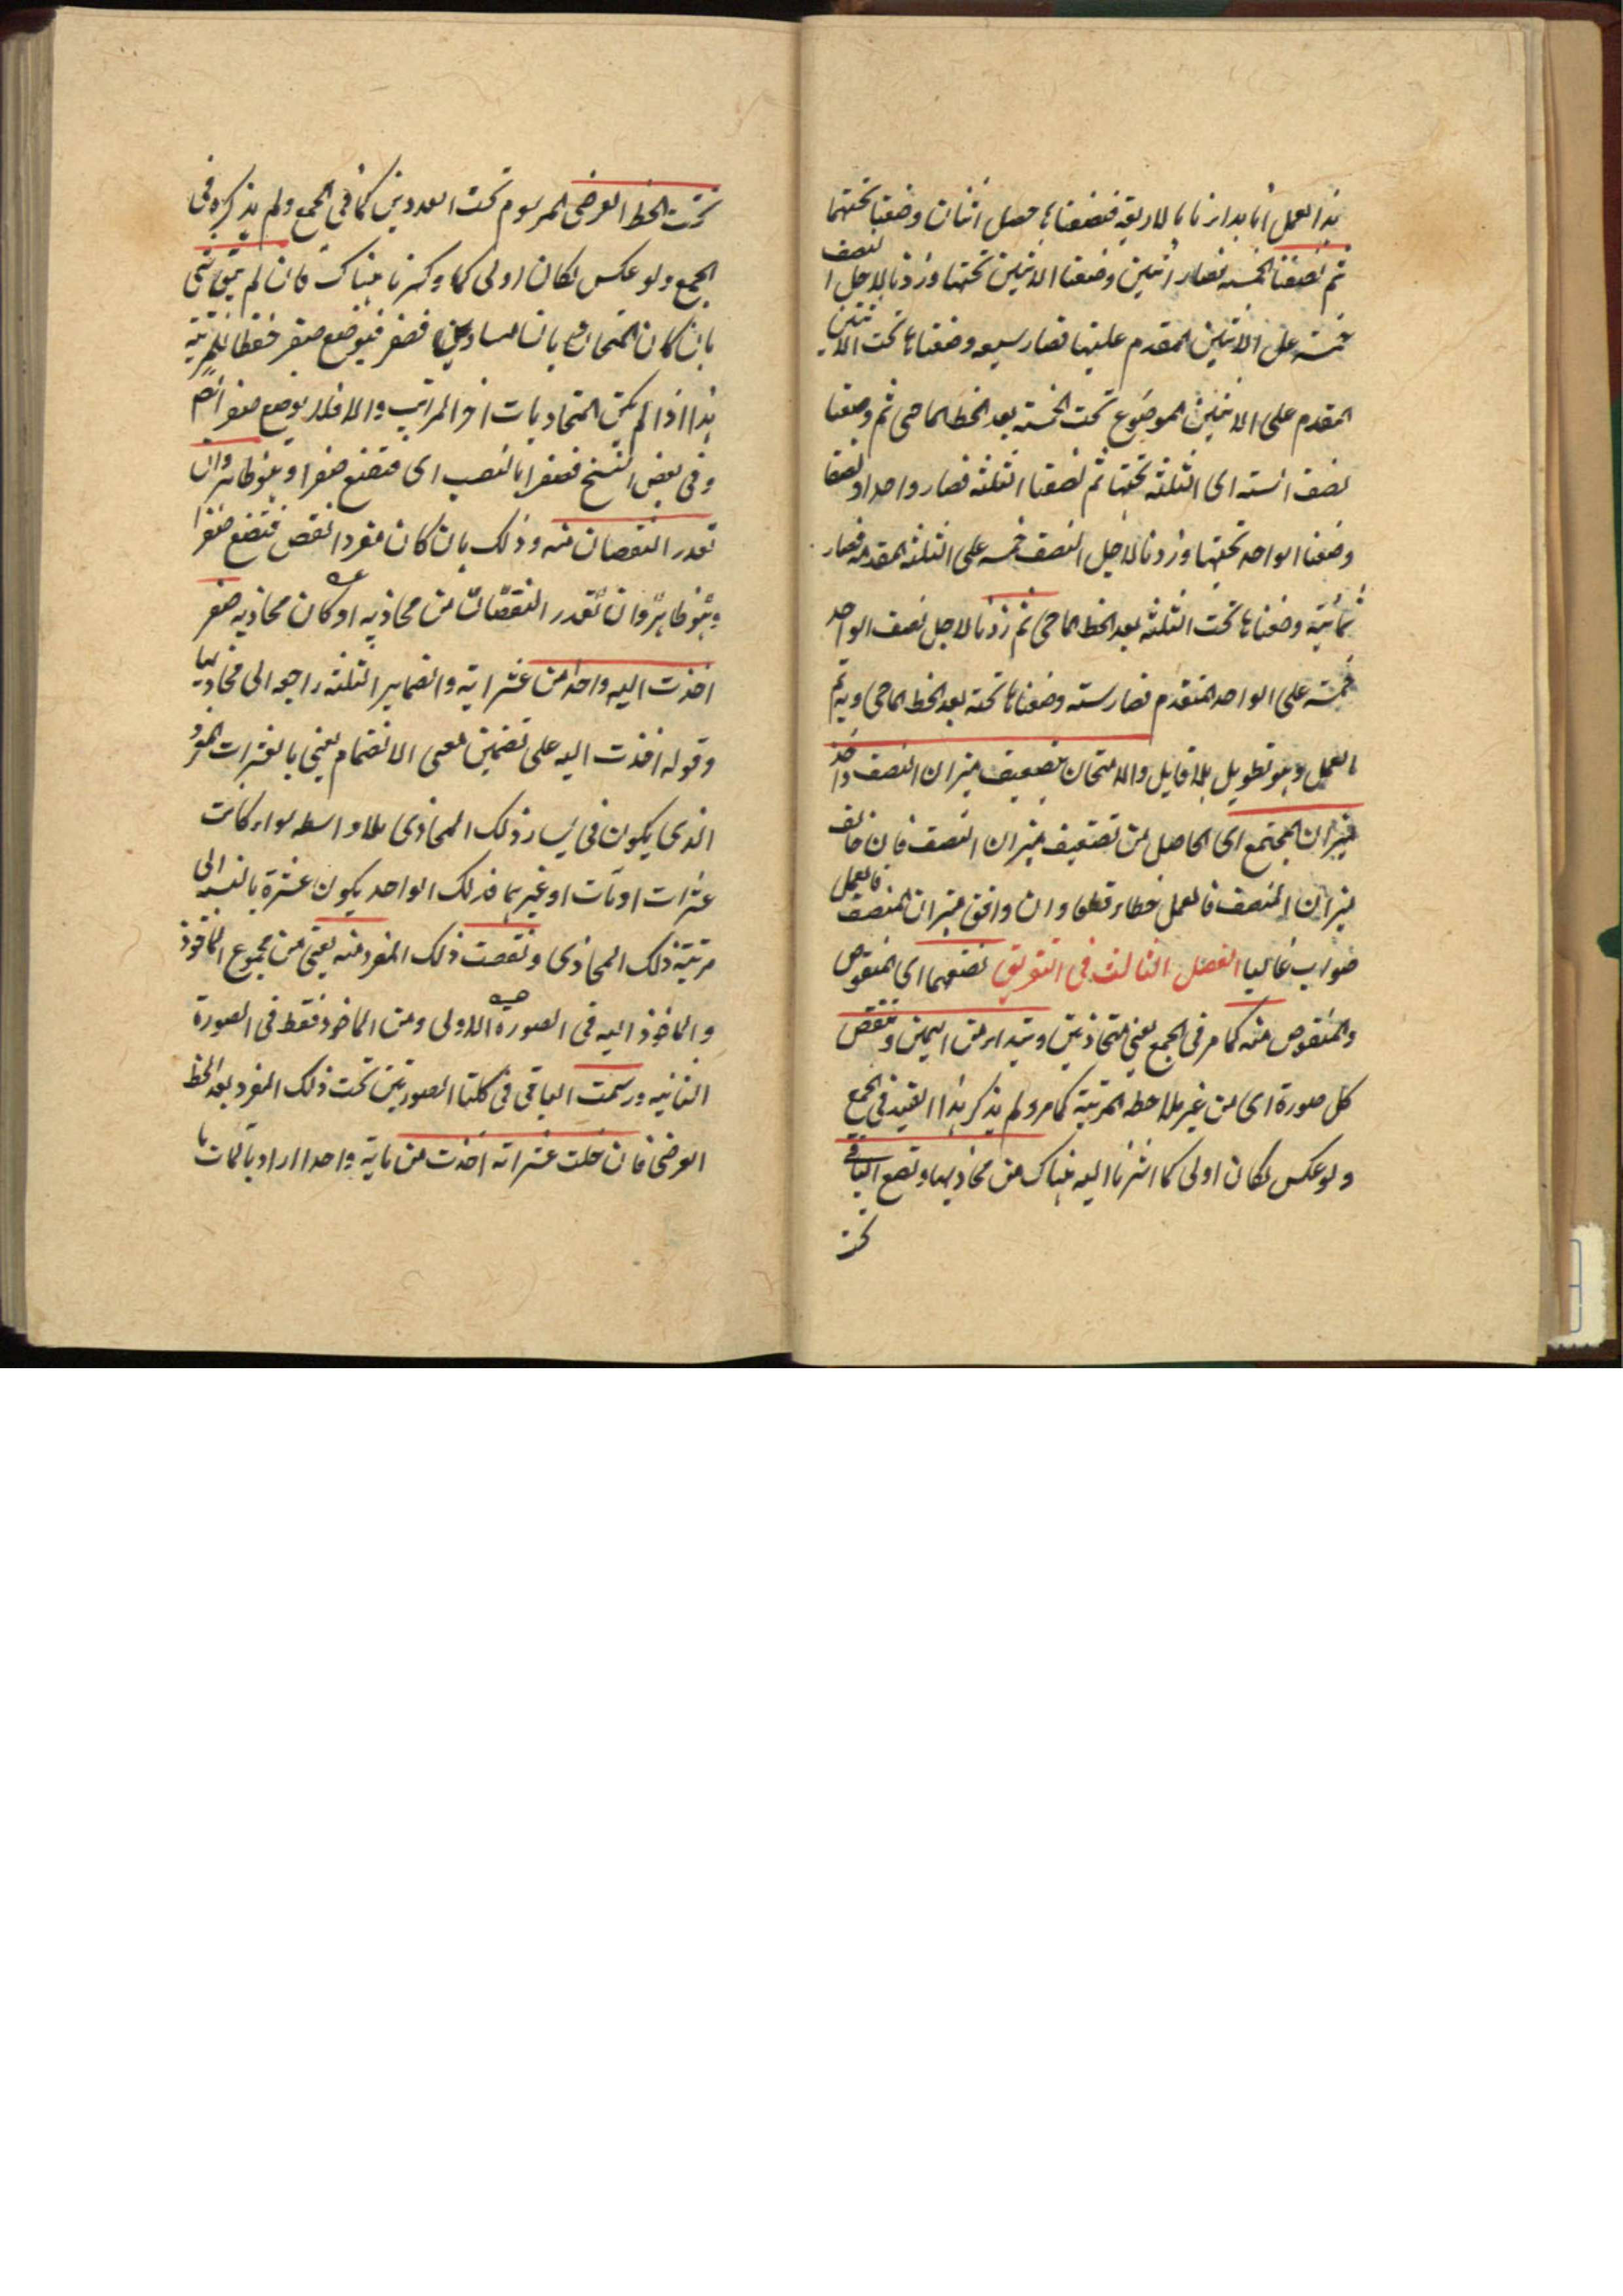 هذا العمل انا بدانا بالاربعة فنصفناها حصل اثنان وضعنا تحتهما
ثم نصفنا الخمسة فصار اثنين وضعنا الاثنين تحتها وزدنا لاجل النصف
خمسة على الاثنين المقدم عليها فصار سبعه وضعناها تحت الاثنين
المقدم على الاثنين الموضوع تحت الخمسة بعد الخط الماحى ثم وضعنا
نصف الستة اى الثلثة تحتها ثم نصفنا الثلثة فصار واحدا ونصفا
وضعنا الواحد تحتها وزدنا لاجل النصف خمسة على الثلثة المقدمة فصار
ثمانية وضعناها تحت الثلثة بعد الخط الماحى ثم زدنا لاجل نصف الواحد
خمسة على الواحد المتقدم فصار ستة وضعناها تحته بعد الخط الماحى وبه تم
العمل وهو تطويل بلا طايل والامتحان بتضعيف ميزان النصف واخذ
ميزان المجتمع اى الحاصل من تضعيف ميزان النصف فان خالف
ميزان المنصف فالعمل خطاء قطعا وان وافق ميزان المنصف فالعمل
صواب غالبا الفصل الثالث فى التفريق تضعهما اى المنقوص
والمنقوص منه كما مر فى الجمع يعنى متحاذيتين وتبدا من اليمين وتنقص
كل صورة اى من غير ملاحظه المرتبة كما مر ولم يذكر هذا القيد فى الجمع
ولو عكس لكان اولى كما اشرنا اليه هناك من محاذيها وتضع الباقى
تحت
تحت الخط العرضى المرسوم تحت العددين كما فى الجمع ولم يذكره فى
الجمع ولو عكس لكان اولى كما ذكرنا هناك فان لم يبق شئ
بان كان المتحاذيان متساويين فصفر فيوضع صفر حفظا للمرتبة
هذا اذا لم يكن المتحاذيات اخر المراتب والا فلا يوضع صفر ايضا
وفى بعض النسخ فصفرا بالنصب اى فتضع صفرا وهو ظاهر وان
تعذر النقصان منه وذلك بان كان مفردا نقص فتضع صفرا
وهو ظاهر وان تعذر النقصان من محاذيه او كان محاذيه صفر
اخذت اليه واحدا من عشراته والضماير الثلثة راجعه الى محاذيها
وقوله اخذت اليه على تضمين معنى الانضمام يعنى بالعشرات المفرد
الذى يكون فى يسار ذلك المحاذى بلا واسطه سواء كانت
عشرات او مآت او غيرهما فذلك الواحد يكون عشرة بالنسبة الى
مرتبة ذلك المحاذى ونقصت ذلك المفرد منه يعنى من مجموع الماخوذ
والماخوذ اليه فى الصورة الاولى ومن الماخوذ فقط فى الصورة
الثانيه ورسمت الباقى فى كلتا الصورتين تحت ذلك المفرد بعد الخط
العرضى فان خلت عشراته اخذت من مآته واحدا اراد بالمآت ما